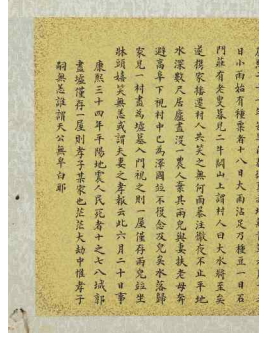 日小雨始有種粟者十八日大雨沾足乃種豆一日石
門莊有老叟暮見二牛鬭山上謂村人曰大水將至矣
遂携家播遷村人共笑之無何雨暴注徹夜不止平地
水深數尺居廬盡沒一農人棄其兩兒與妻扶老母奔
避高阜下視村中已為澤國並不復念及兒矣水落歸
家見一村盡為墟墓入門視之則一屋僅存兩兒並坐
牀頭嬉笑無恙咸謂夫妻之孝報云此六月二十日事
康熙三十四年平陽地震人民死者十之七八城郭
盡墟僅存一屋則孝子某家也茫茫大劫中惟孝子
嗣無恙誰謂天公無皁白耶